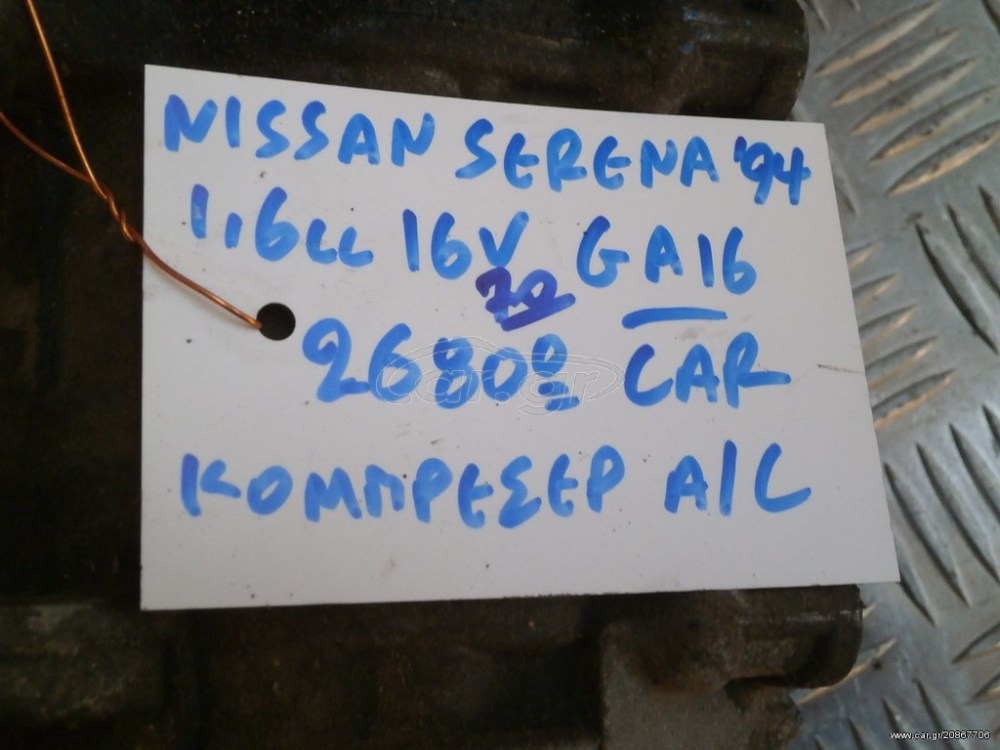 NISSAN SERENA '94
1,6cc 16V GA16
70
26809 CAR
ΚΟΜΠΡΕΣΕΡ A/C
car.gr
www.car.gr/20867706